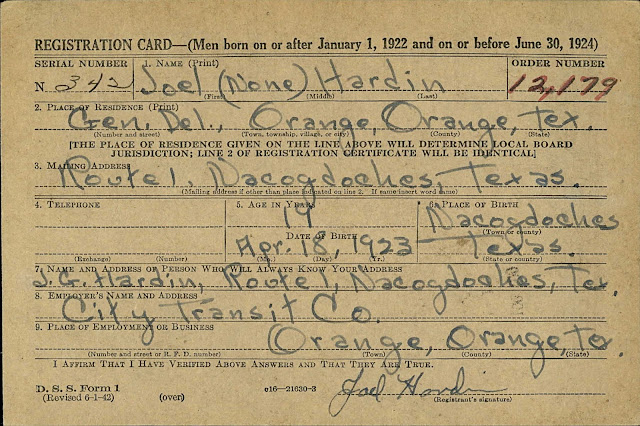 REGISTRATION CARD—(Men born on or after January 1, 1922 and on or before June 30, 1924)
SERIAL NUMBER 1. NAME (Print) ORDER NUMBER
N 342 Joel (None) Hardin 12,179
(First) (Middle) (Last)
2. PLACE OF RESIDENCE (Print)
Gen. Del., Orange, Orange, Tex.
(Number and street) (Town, township, village, or city) (County) (State)
[THE PLACE OF RESIDENCE GIVEN ON THE LINE ABOVE WILL DETERMINE LOCAL BOARD
JURISDICTION; LINE 2 OF REGISTRATION CERTIFICATE WILL BE IDENTICAL]
3. MAILING ADDRESS
Route 1, Nacogdoches, Texas.
(Mailing address if other than place indicated on line 2. If same insert word same)
4. TELEPHONE 5. AGE IN YEARS 6. PLACE OF BIRTH
19 Nacogdoches
DATE OF BIRTH (Town or county)
Apr. 18, 1923 Texas.
(Exchange) (Number) (Mo.) (Day) (Yr.) (State or country)
7. NAME AND ADDRESS OF PERSON WHO WILL ALWAYS KNOW YOUR ADDRESS
J. G. Hardin, Route 1, Nacogdoches, Tex.
8. EMPLOYER'S NAME AND ADDRESS
City Transit Co.
9. PLACE OF EMPLOYMENT OR BUSINESS
Orange, Orange, Tex.
(Number and street or R. F. D. number) (Town) (County) (State)
I AFFIRM THAT I HAVE VERIFIED ABOVE ANSWERS AND THAT THEY ARE TRUE.
D. S. S. Form 1 c16—21630-3 Joel Hardin
(Revised 6-1-42) (over) (Registrant's signature)